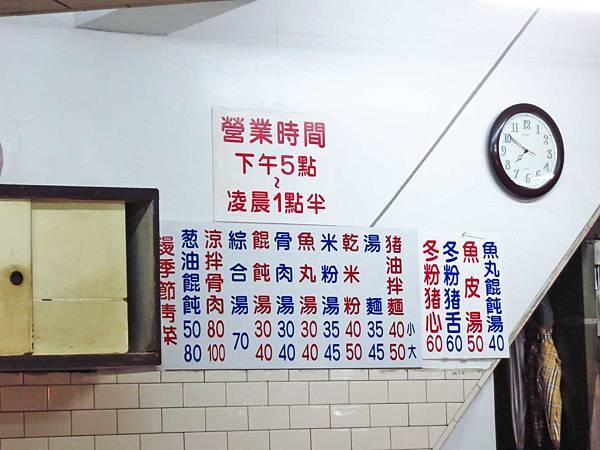 營業時間
下午5點
~
凌晨1點半
魚丸餛飩湯 40
魚皮湯 50
冬粉豬舌 60
冬粉豬心 60
小 大
猪油拌麵 40 50
湯麵 35 45
乾米粉 40 50
米粉湯 35 45
魚丸湯 30 40
骨肉湯 30 40
餛飩湯 30 40
綜合湯 70
涼拌骨肉 80 100
葱油餛飩 50 80
季節青菜